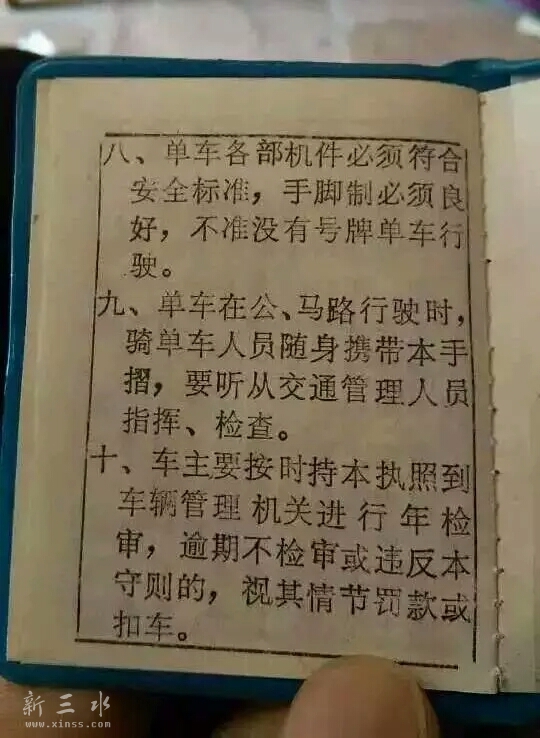 八、单车各部机件必须符合
安全标准，手脚制必须良
好，不准没有号牌单车行
驶。
九、单车在公、马路行驶时，
骑单车人员随身携带本手
摺，要听从交通管理人员
指挥、检查。
十、车主要按时持本执照到
车辆管理机关进行年检
审，逾期不检审或违反本
守则的，视其情节罚款或
扣车。
新三水
www.xinss.com